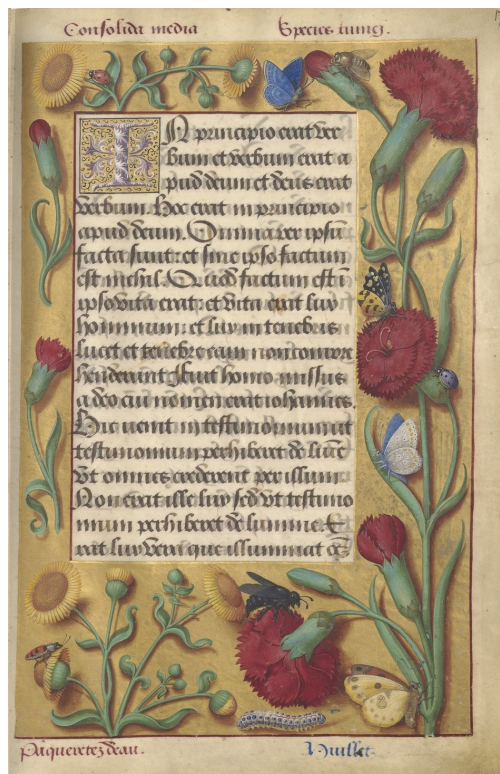 Consolida media Species tunig.
In principio erat ver
bum et verbum erat a
pud deum et deus erat
verbum. Hoc erat in principio
apud deum. Omnia per ipsū
facta sunt: et sine ipso factum
est nichil. Quod factum est ī
ipso vita erat: et vita erat lux
hominum: et lux in tenebris
lucet et tenebre eam non compre
henderunt Fuit homo missus
a deo cui nomen erat iohannes.
Hic venit in testimonium ut
testimonium perhiberet de lumīe
Ut omnes crederent per illum
Non erat ille lux sed ut testimo
nium perhiberet de lumine. E
rat lux vera que illuminat oēm
Paqueretez deau. Oeuillet.